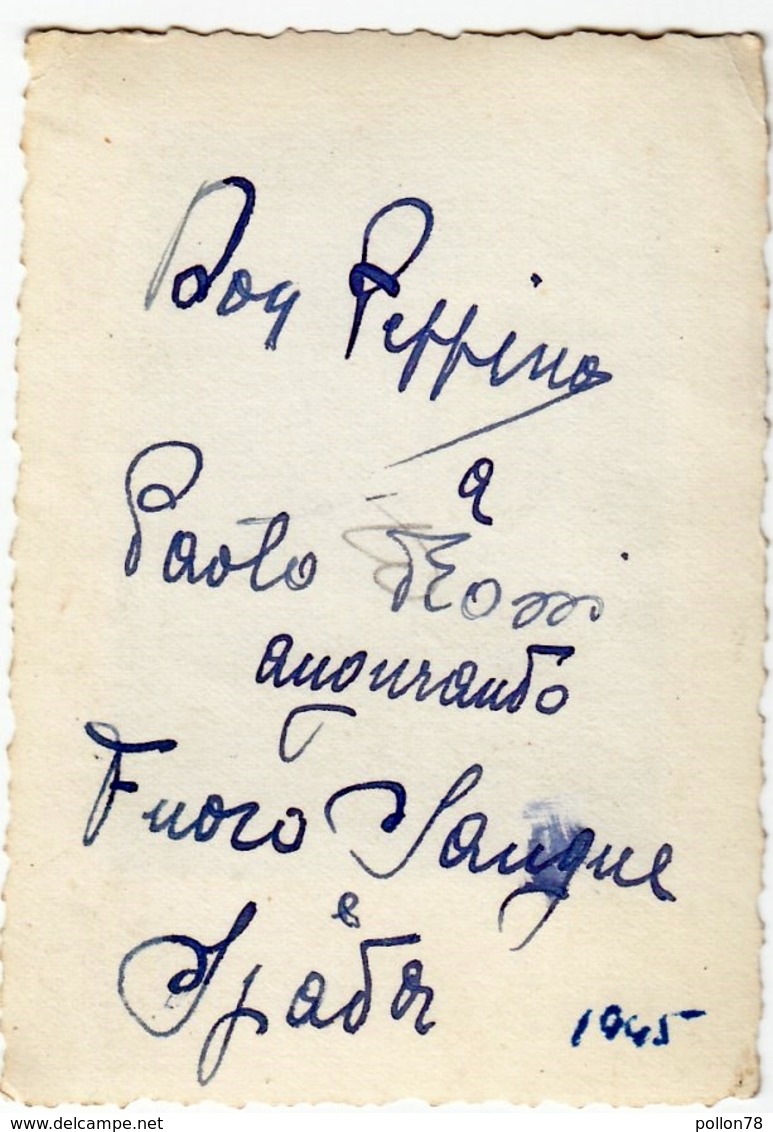 Don Peppino
a
Paolo Rossi
augurando
Fuoco Sangue
e
Spada
1945
pollon78